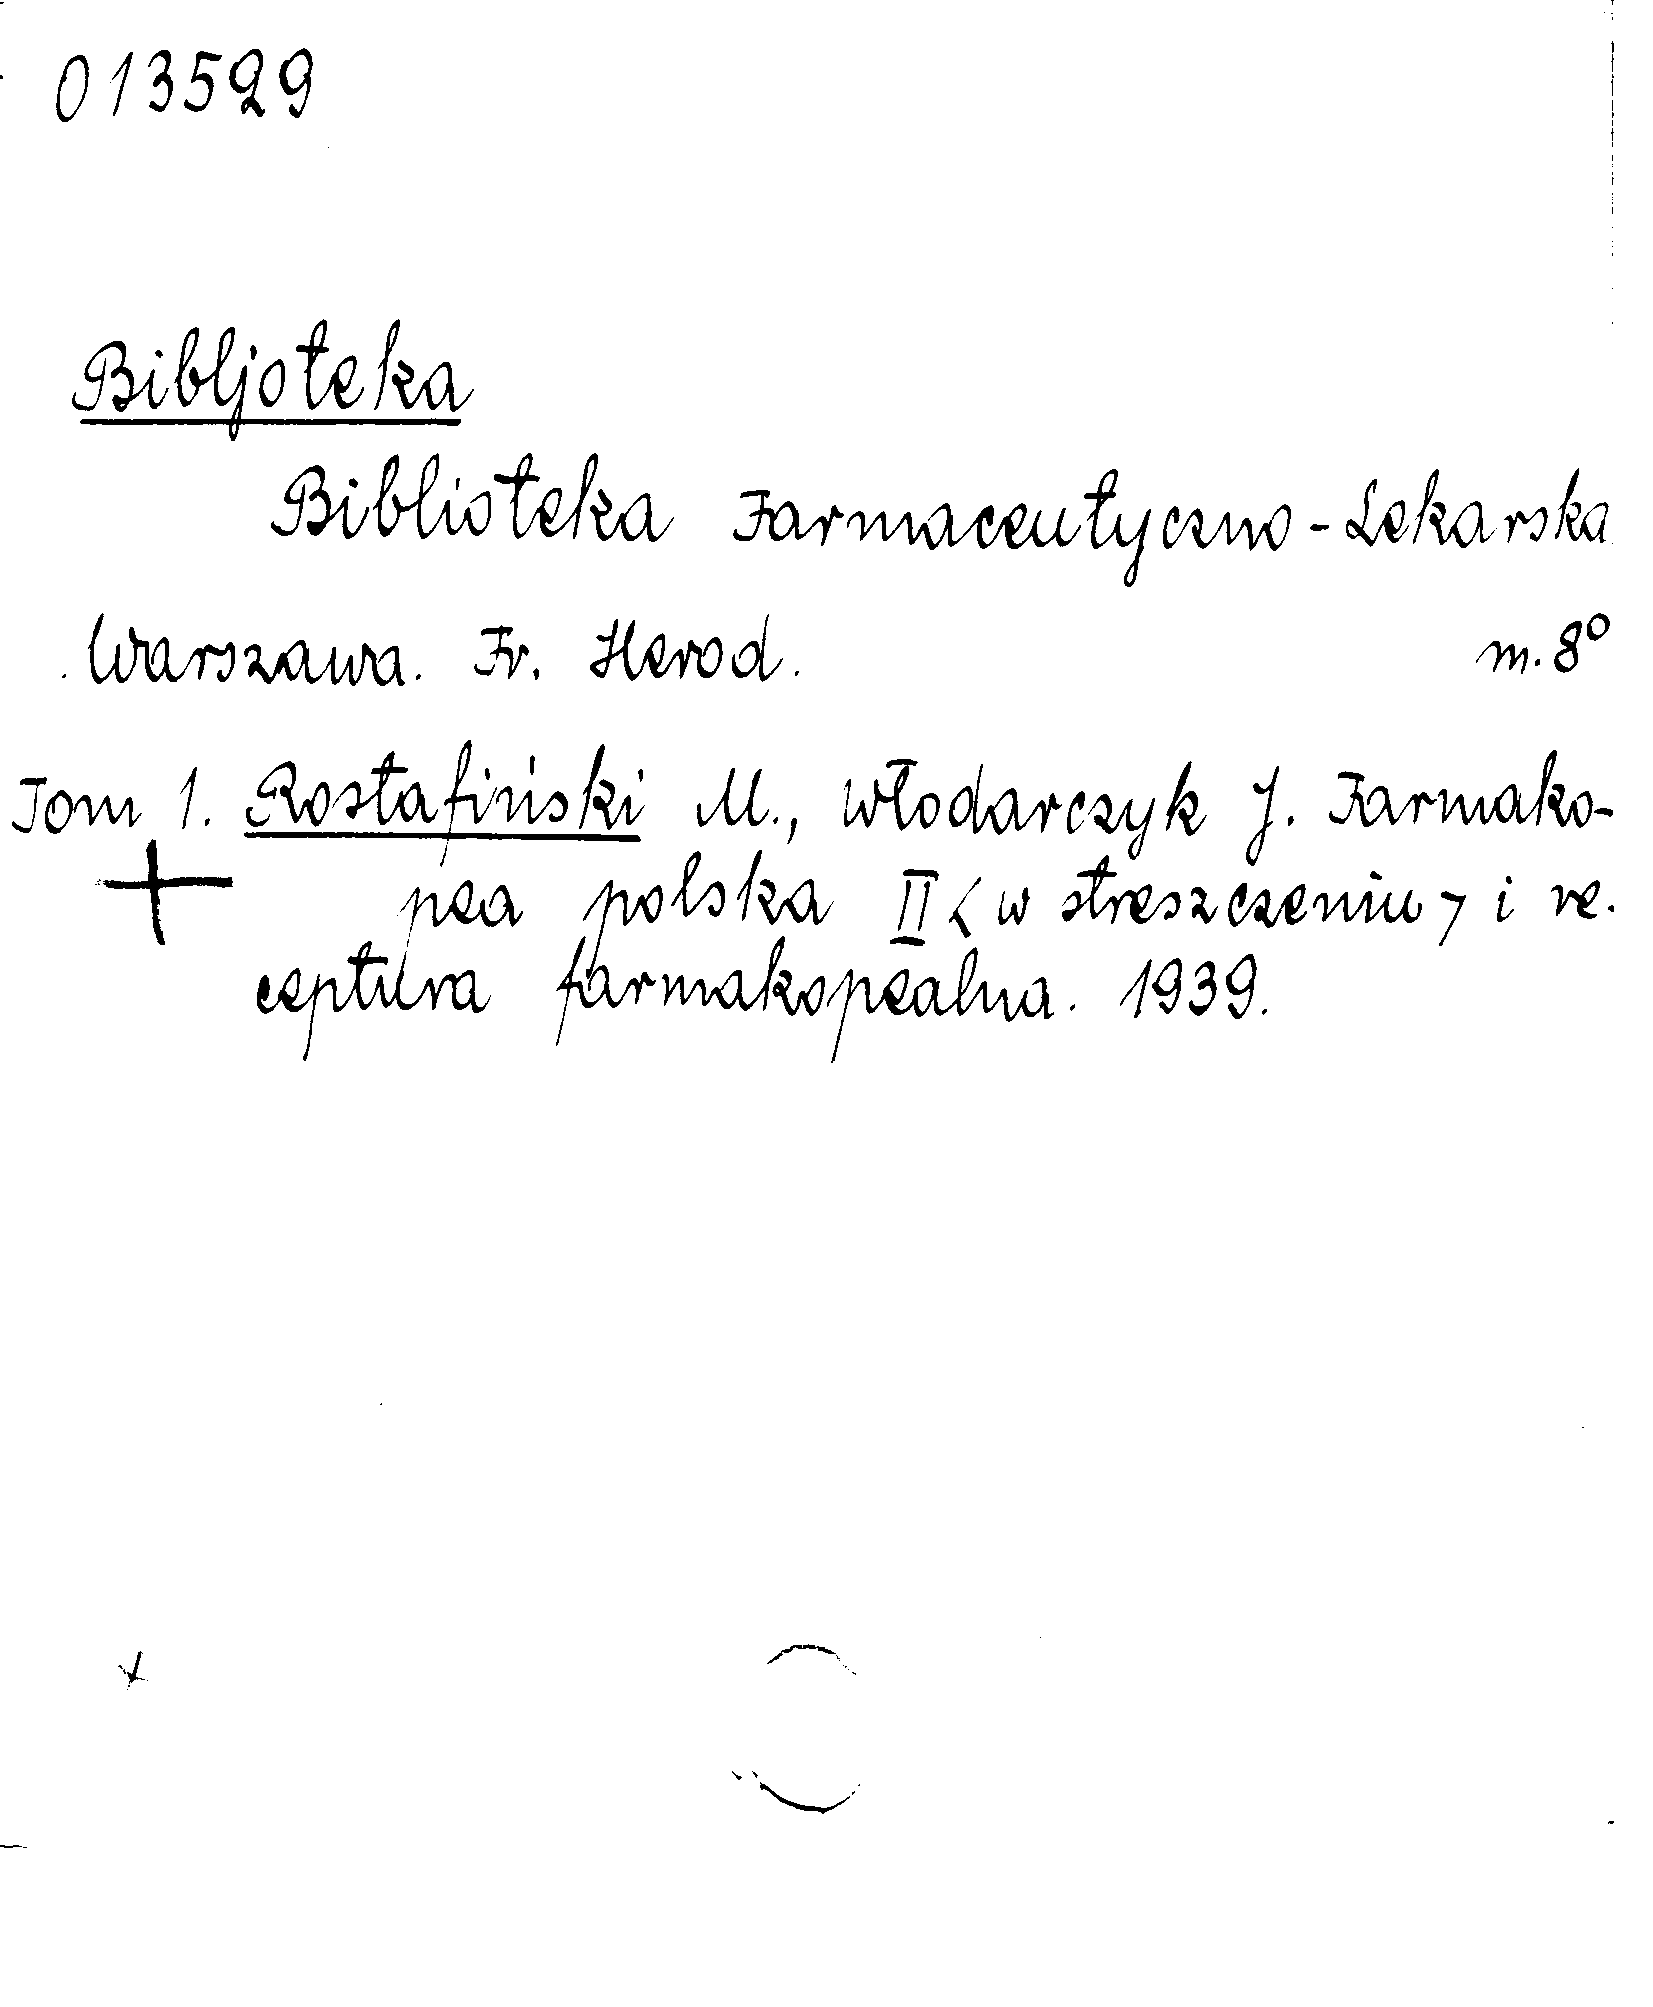 013529
Bibljoteka
Biblioteka Farmaceutyczno-Lekarska
Warszawa. Fr. Herod. m. 8°
Tom 1. Rostafiński M., Włodarczyk J. Farmako-
pea polska II < w streszczeniu > i re.
ceptura farmakopealna. 1939.